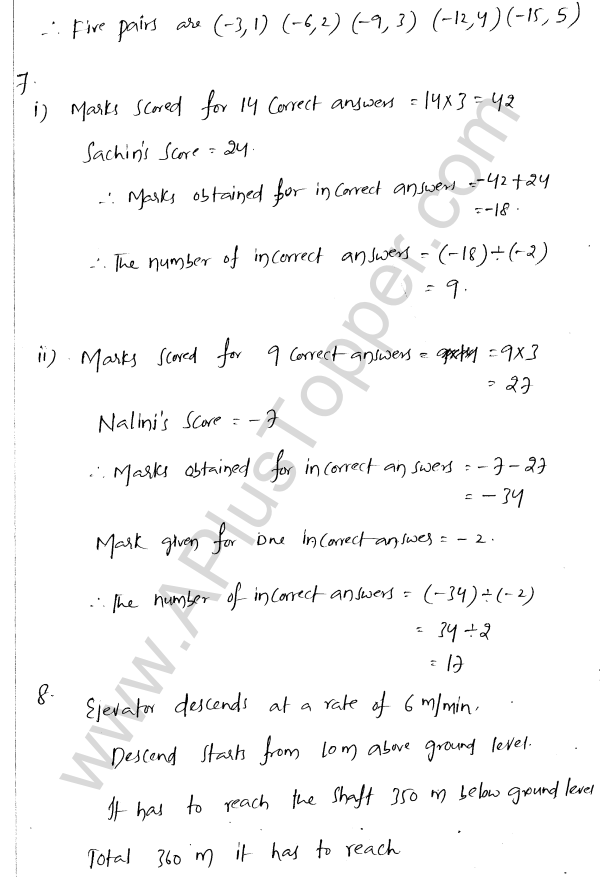 ∴ Five pairs are (-3,1) (-6,2) (-9,3) (-12,4) (-15,5)
7.
i) Marks scored for 14 Correct answers = 14×3 = 42
Sachin's Score = 24.
∴ Marks obtained for incorrect answers = -42+24
= -18.
∴ The number of incorrect answers = (-18)÷(-2)
= 9.
ii) Marks scored for 9 correct answers = = 9×3
= 27
Nalini's Score = -7
∴ Marks obtained for incorrect answers = -7-27
= -34
Mark given for one incorrect answes = -2.
∴ The number of incorrect answers = (-34)÷(-2)
= 34÷2
= 17
8. Elevator descends at a rate of 6 m/min.
Descend starts from 10m above ground level.
It has to reach the shaft 350 m below ground level
Total 360 m it has to reach
www.APlusTopper.com